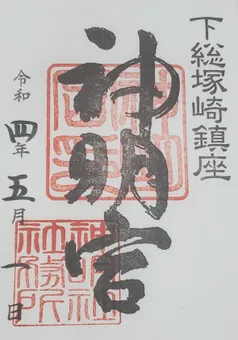 下総塚崎鎮座
神明宮
令和四年五月一日
神明社
社務所